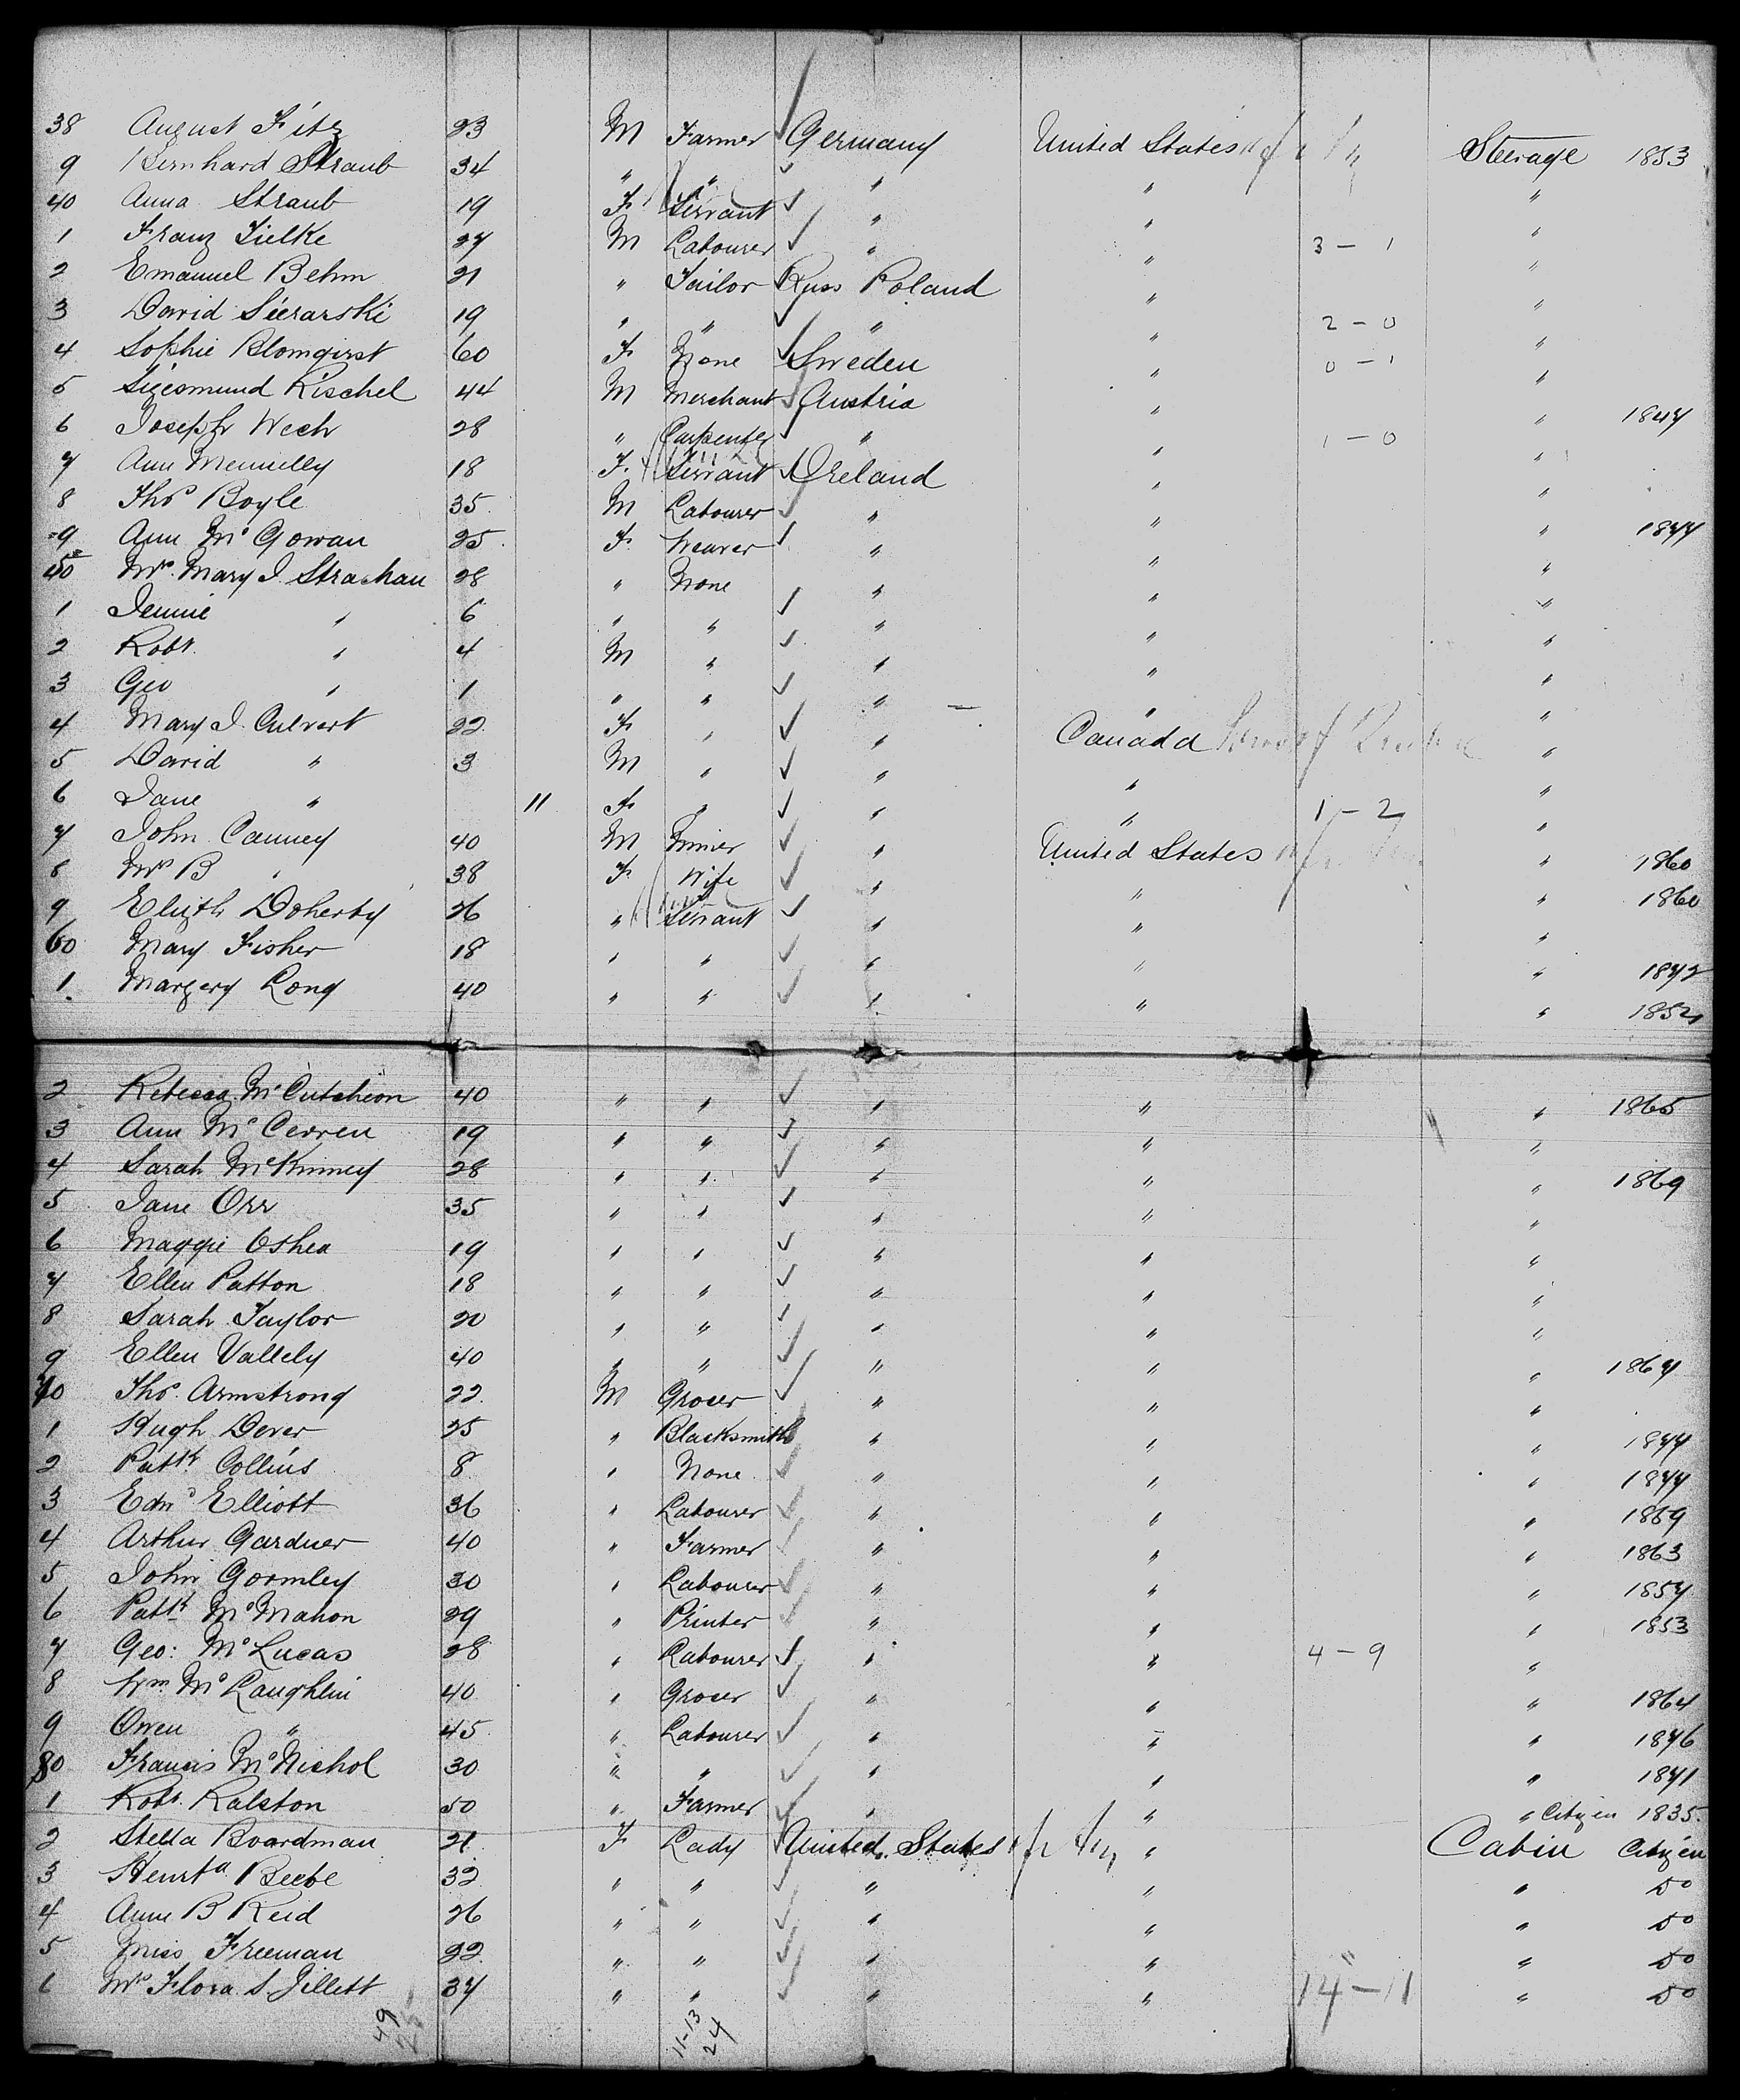 38 August Fitz 23 M Farmer Germany United States Steerage 1853
9 Bernhard Straub 34 " " " " "
40 Anna Straub 19 F Servant " " "
1 Franz Zielke 27 M Labourer " " 3 - 1 "
2 Emanuel Behm 21 " Tailor Russ Poland " "
3 David Sierarski 19 " " " " 2 - 0 "
4 Sophie Blomqirst 60 F None Sweden " 0 - 1 "
5 Sigismund Kischel 44 M Merchant Austria " " 1847
6 Joseph Wech 28 " Carpenter " " 1 - 0 "
7 Ann Mennelly 18 F. Servant Ireland " "
8 Thos Boyle 35 M Labourer " " "
9 Ann McGowan 25 F. Weaver " " " 1877
50 Mrs. Mary J. Strachan 28 " None " " "
1 Jennie " 6 " " " " "
2 Robt. " 4 M " " " "
3 Geo " 1 " " " " "
4 Mary J. Culvert 22 F " " Canada "
5 David " 3 M " " " "
6 Jane " 11 F " " " 1 - 2 "
7 John Canney 40 M Miner " United States " 1860
8 Mrs B " 38 F Wife " " " 1860
9 Elizth Doherty 26 " Servant " " "
60 Mary Fisher 18 " " " " " 1872
1. Margery Long 40 " " " " " 1852
2 Rebecca McCutcheon 40 " " " " " 1865
3 Ann McCerren 19 " " " " "
4 Sarah McKinney 28 " " " " " 1869
5 Jane Orr 35 " " " " "
6 Maggie Oshea 19 " " " " "
7 Ellen Patton 18 " " " " "
8 Sarah Taylor 20 " " " " "
9 Ellen Vallely 40 " " " " " 1867
70 Thos. Armstrong 22 M Grocer " " "
1 Hugh Dever 25 " Blacksmith " " " 1877
2 Patk. Collins 8 " None " " " 1877
3 Edwd Elliott 36 " Labourer " " " 1869
4 Arthur Gardner 40 " Farmer " " " 1863
5 John Gormley 30 " Labourer " " " 1857
6 Patk McMahon 29 " Printer " " " 1853
7 Geo: McLucas 28 " Labourer " " 4 - 9 "
8 Wm. McLaughlin 40 " Grocer " " " 1864
9 Owen " 45 " Labourer " " " 1876
80 Francis McNichol 30 " " " " " 1871
1 Robt. Ralston 50 " Farmer " " " Citizen 1835.
2 Stella Boardman 21 F Lady United States " Cabin Citizen
3 Henrta Beebe 32 " " " " " Do
4 Anna B Reid 26 " " " " " Do
5 Miss Freeman 22 " " " " " Do
6 Mrs Flora S. Jillett 37 " " " " 14 - 11 " Do
49
11-13
24